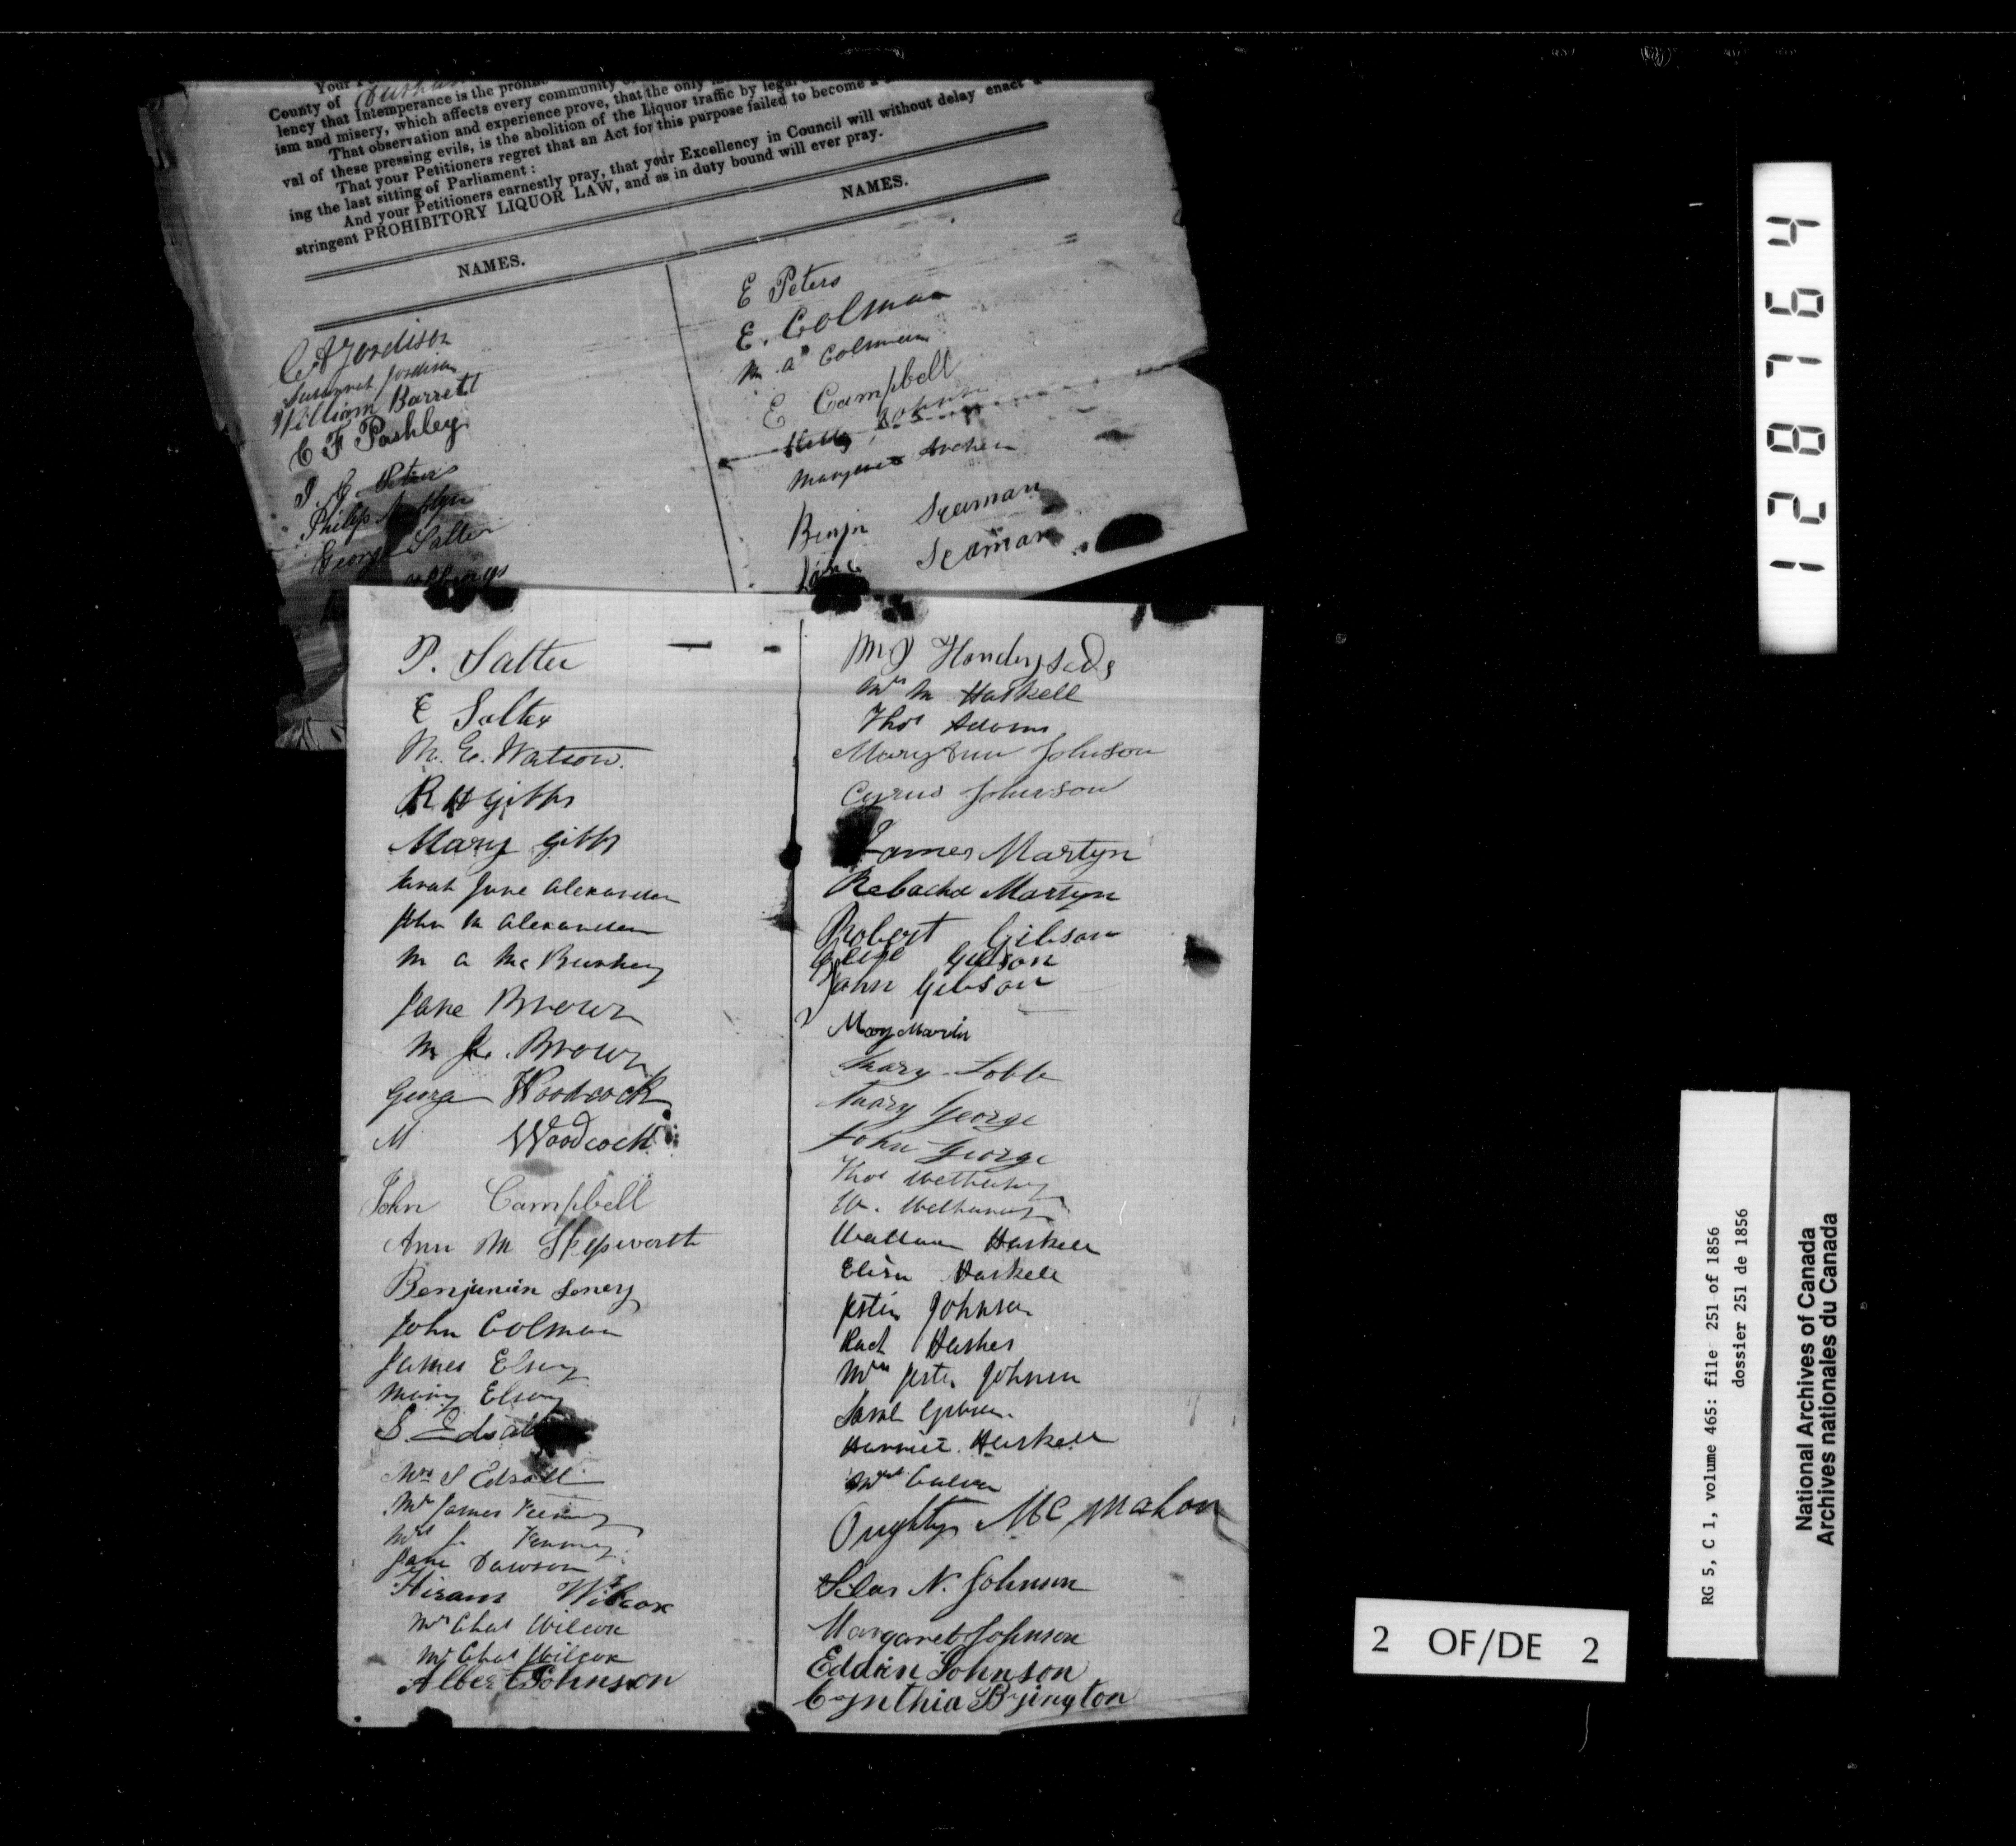 County of Durham
lency that Intemperance is the
ism and misery, which affects every community
That observation and experience prove, that the only
val of these pressing evils, is the abolition of the Liquor traffic by legal
That your Petitioners regret that an Act for this purpose failed to become a
ing the last sitting of Parliament:
And your Petitioners earnestly pray, that your Excellency in Council will without delay enact a
stringent PROHIBITORY LIQUOR LAW, and as in duty bound will ever pray.
NAMES.
C A Jordison
Susannah Jordison
William Barrett
C F Pashley
Peters
Philip
George Salter
NAMES.
E Peters
E. Colman
M. A. Colman
E Campbell
Margaret
Benjn Seaman
Jane Seaman
P. Salter
E Salter
M. E. Watson.
R H Gibbs
Mary Gibbs
Sarah Jane Alexander
John M Alexander
M A Mc Burney
Jane Brown
M J. Brown
George Woodcock
M Woodcock
John Campbell
Ann M Skepworth
Benjamin
John Colman
James Elsey
Mary Elsey
S. Edsall
Mrs S Edsall
Mr James
Mrs J.
Jane Dawson
Hiram Wilcox
Mrs Chas Wilcox
Mr Chas Wilcox
Albert Johnson
Mrs M Haskell
Thos Adams
Mary Ann Johnson
Cyrus Johnson
James Martyn
Rebacha Martyn
Robert Gibson
Gibson
John Gibson
Mary Martin
Mary
Mary George
John George
Thos
W.
William Haskell
Eliza Haskell
Johnson
Mrs Johnson
Sarah
Harriet Haskell
Mc Mahon
Silas N. Johnson
Margaret Johnson
Eddin Johnson
Cynthia Byington
128764
2 OF/DE 2
RG 5, C 1, volume 465: file 251 of 1856
dossier 251 de 1856
National Archives of Canada
Archives nationales du Canada